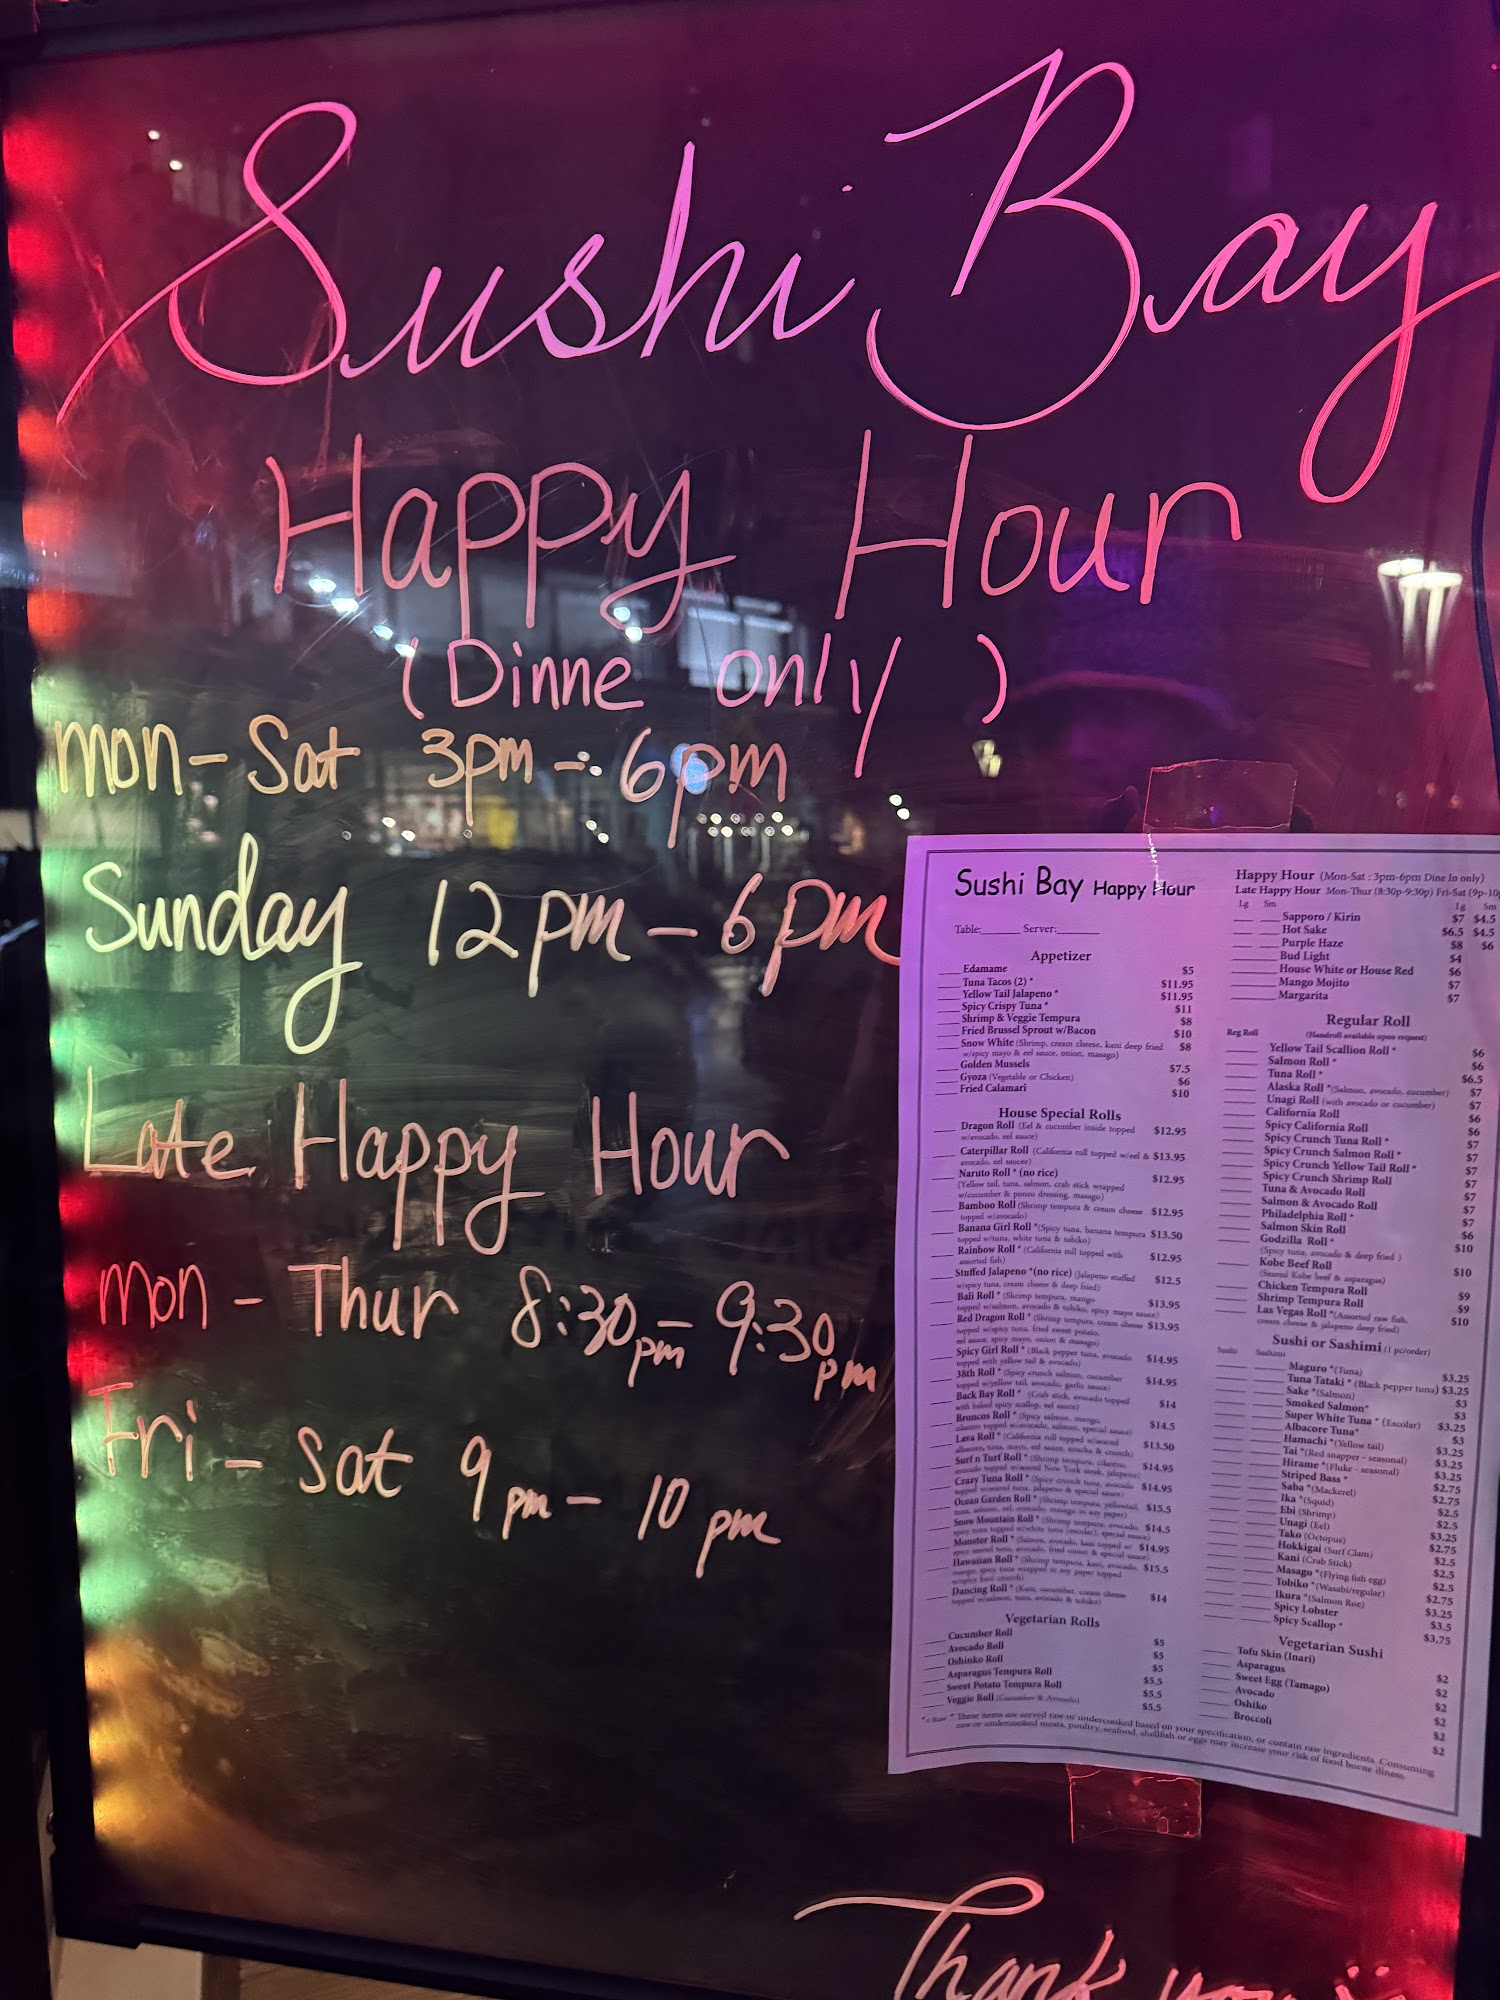 Sushi Bay
Happy Hour
(Dinne only)
Mon - Sat 3pm - 6pm
Sunday 12pm - 6pm
Late Happy Hour
Mon - Thur 8:30pm - 9:30pm
Fri - Sat 9pm - 10pm
Sushi Bay Happy Hour
Table:______ Server:______
Appetizer
Edamame $5
Tuna Tacos (2) * $11.95
Yellow Tail Jalapeno * $11.95
Spicy Crispy Tuna * $11
Shrimp & Veggie Tempura $8
Fried Brussel Sprout w/Bacon $10
Snow White (Shrimp, cream cheese, kani deep fried $8
w/spicy mayo & eel sauce, onion, masago)
Golden Mussels $7.5
Gyoza (Vegetable or Chicken) $6
Fried Calamari $10
House Special Rolls
Dragon Roll (Eel & cucumber inside topped $12.95
w/avocado, eel sauce)
Caterpillar Roll (California roll topped w/eel & $13.95
avocado, eel saucee)
Naruto Roll * (no rice) $12.95
(Yellow tail, tuna, salmon, crab stick wrapped
w/cucumber & ponzu dressing, masago)
Bamboo Roll (Shrimp tempura & cream cheese $12.95
topped w/avocado)
Banana Girl Roll *(Spicy tuna, banana tempura $13.50
topped w/tuna, white tuna & tobiko)
Rainbow Roll * (California roll topped with $12.95
assorted fish)
Stuffed Jalapeno *(no rice) (Jalapeno stuffed $12.5
w/spicy tuna, cream cheese & deep fried)
Bali Roll * (Shrimp tempura, mango $13.95
topped w/salmon, avocado & tobiko, spicy mayo sauce)
Red Dragon Roll * (Shrimp tempura, cream cheese $13.95
topped w/spicy tuna, fried sweet potato,
eel sauce, spicy mayo, onion & masago)
Spicy Girl Roll * (Black pepper tuna, avocado $14.95
topped with yellow tail & avocado)
38th Roll * (Spicy crunch salmon, cucumber $14.95
topped w/yellow tail, avocado, garlic sauce)
Back Bay Roll * (Crab stick, avocado topped $14
with baked spicy scallop, eel sauce)
Broncos Roll * (Spicy salmon, mango, $14.5
cilantro topped w/avocado, salmon, special sauce)
Lava Roll * (California roll topped w/seared $13.50
albacore, tuna, mayo, eel sauce, sriracha & crunch)
Surf n Turf Roll * (Shrimp tempura, cilantro, $14.95
avocado topped w/seared New York steak, jalapeno)
Crazy Tuna Roll * (Spicy crunch tuna, avocado $14.95
topped w/seared tuna, jalapeno & special sauce)
Ocean Garden Roll * (Shrimp tempura, yellowtail, $15.5
tuna, salmon, eel, avocado, masago in soy paper)
Snow Mountain Roll * (Shrimp tempura, avocado, $14.5
spicy tuna topped w/white tuna (escolar), special sauce)
Monster Roll * (Salmon, avocado, kani topped w/ $14.95
spicy seared tuna, avocado, fried onion & special sauce)
Hawaiian Roll * (Shrimp tempura, kani, avocado, $15.5
mango, spicy tuna wrapped in soy paper topped
w/spicy kani crunch)
Dancing Roll * (Kani, cucumber, cream cheese $14
topped w/salmon, tuna, avocado & tobiko)
Vegetarian Rolls
Cucumber Roll $5
Avocado Roll $5
Oshinko Roll $5
Asparagus Tempura Roll $5.5
Sweet Potato Tempura Roll $5.5
Veggie Roll (Cucumber & Avocado) $5.5
Happy Hour (Mon-Sat : 3pm-6pm Dine In only)
Late Happy Hour Mon-Thur (8:30p-9:30p) Fri-Sat (9p-10
Lg Sm Lg Sm
Sapporo / Kirin $7 $4.5
Hot Sake $6.5 $4.5
Purple Haze $8 $6
Bud Light $4
House White or House Red $6
Mango Mojito $7
Margarita $7
Regular Roll
Reg Roll (Handroll available upon request)
Yellow Tail Scallion Roll * $6
Salmon Roll * $6
Tuna Roll * $6.5
Alaska Roll *(Salmon, avocado, cucumber) $7
Unagi Roll (with avocado or cucumber) $7
California Roll $6
Spicy California Roll $6
Spicy Crunch Tuna Roll * $7
Spicy Crunch Salmon Roll * $7
Spicy Crunch Yellow Tail Roll * $7
Spicy Crunch Shrimp Roll $7
Tuna & Avocado Roll $7
Salmon & Avocado Roll $7
Philadelphia Roll * $7
Salmon Skin Roll $6
Godzilla Roll * $10
(Spicy tuna, avocado & deep fried )
Kobe Beef Roll $10
(Seared Kobe beef & asparagus)
Chicken Tempura Roll $9
Shrimp Tempura Roll $9
Las Vegas Roll *(Assorted raw fish, $10
cream cheese & jalapeno deep fried)
Sushi or Sashimi (1 pc/order)
Sushi Sashimi
Maguro *(Tuna) $3.25
Tuna Tataki * (Black pepper tuna) $3.25
Sake *(Salmon) $3
Smoked Salmon* $3
Super White Tuna * (Escolar) $3.25
Albacore Tuna* $3
Hamachi *(Yellow tail) $3.25
Tai *(Red snapper - seasonal) $3.25
Hirame *(Fluke - seasonal) $3.25
Striped Bass * $2.75
Saba *(Mackerel) $2.75
Ika *(Squid) $2.5
Ebi (Shrimp) $2.5
Unagi (Eel) $3.25
Tako (Octopus) $2.75
Hokkigai (Surf Clam) $2.5
Kani (Crab Stick) $2.5
Masago *(Flying fish egg) $2.5
Tobiko *(Wasabi/regular) $2.75
Ikura *(Salmon Roe) $3.25
Spicy Lobster $3.5
Spicy Scallop * $3.75
Vegetarian Sushi
Tofu Skin (Inari) $2
Asparagus $2
Sweet Egg (Tamago) $2
Avocado $2
Oshiko $2
Broccoli $2
*= Raw * These items are served raw or undercooked based on your specification, or contain raw ingredients. Consuming
raw or undercooked meats, poultry, seafood, shellfish or eggs may increase your risk of food borne illness.
Thank you